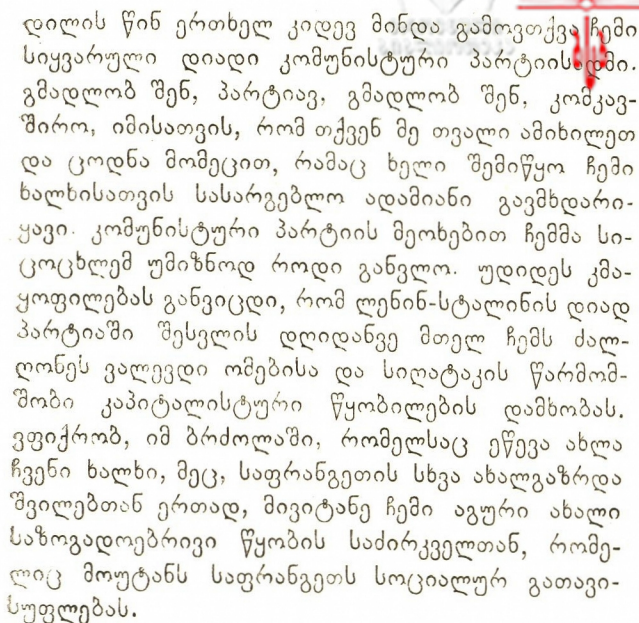 დილის წინ ერთხელ კიდევ მინდა გამოვთქვა ჩემი
სიყვარული დიადი კომუნისტური პარტიისადმი.
გმადლობ შენ, პარტიავ, გმადლობ შენ, კომკავ-
შირო, იმისათვის, რომ თქვენ მე თვალი ამიხილეთ
და ცოდნა მომეცით, რამაც ხელი შემიწყო ჩემი
ხალხისათვის სასარგებლო ადამიანი გავმხდარი-
ყავი. კომუნისტური პარტიის მეოხებით ჩემმა სი-
ცოცხლემ უმიზნოდ როდი განვლო. უდიდეს კმა-
ყოფილებას განვიცდი, რომ ლენინ-სტალინის დიად
პარტიაში შესვლის დღიდანვე მთელ ჩემს ძალ-
ღონეს ვალევდი ომებისა და სიღატაკის წარმომ-
შობი კაპიტალისტური წყობილების დამხობას.
ვფიქრობ, იმ ბრძოლაში, რომელსაც ეწევა ახლა
ჩვენი ხალხი, მეც, საფრანგეთის სხვა ახალგაზრდა
შვილებთან ერთად, მივიტანე ჩემი აგური ახალი
საზოგადოებრივი წყობის საძირკველთან, რომე-
ლიც მოუტანს საფრანგეთს სოციალურ გათავი-
სუფლებას.